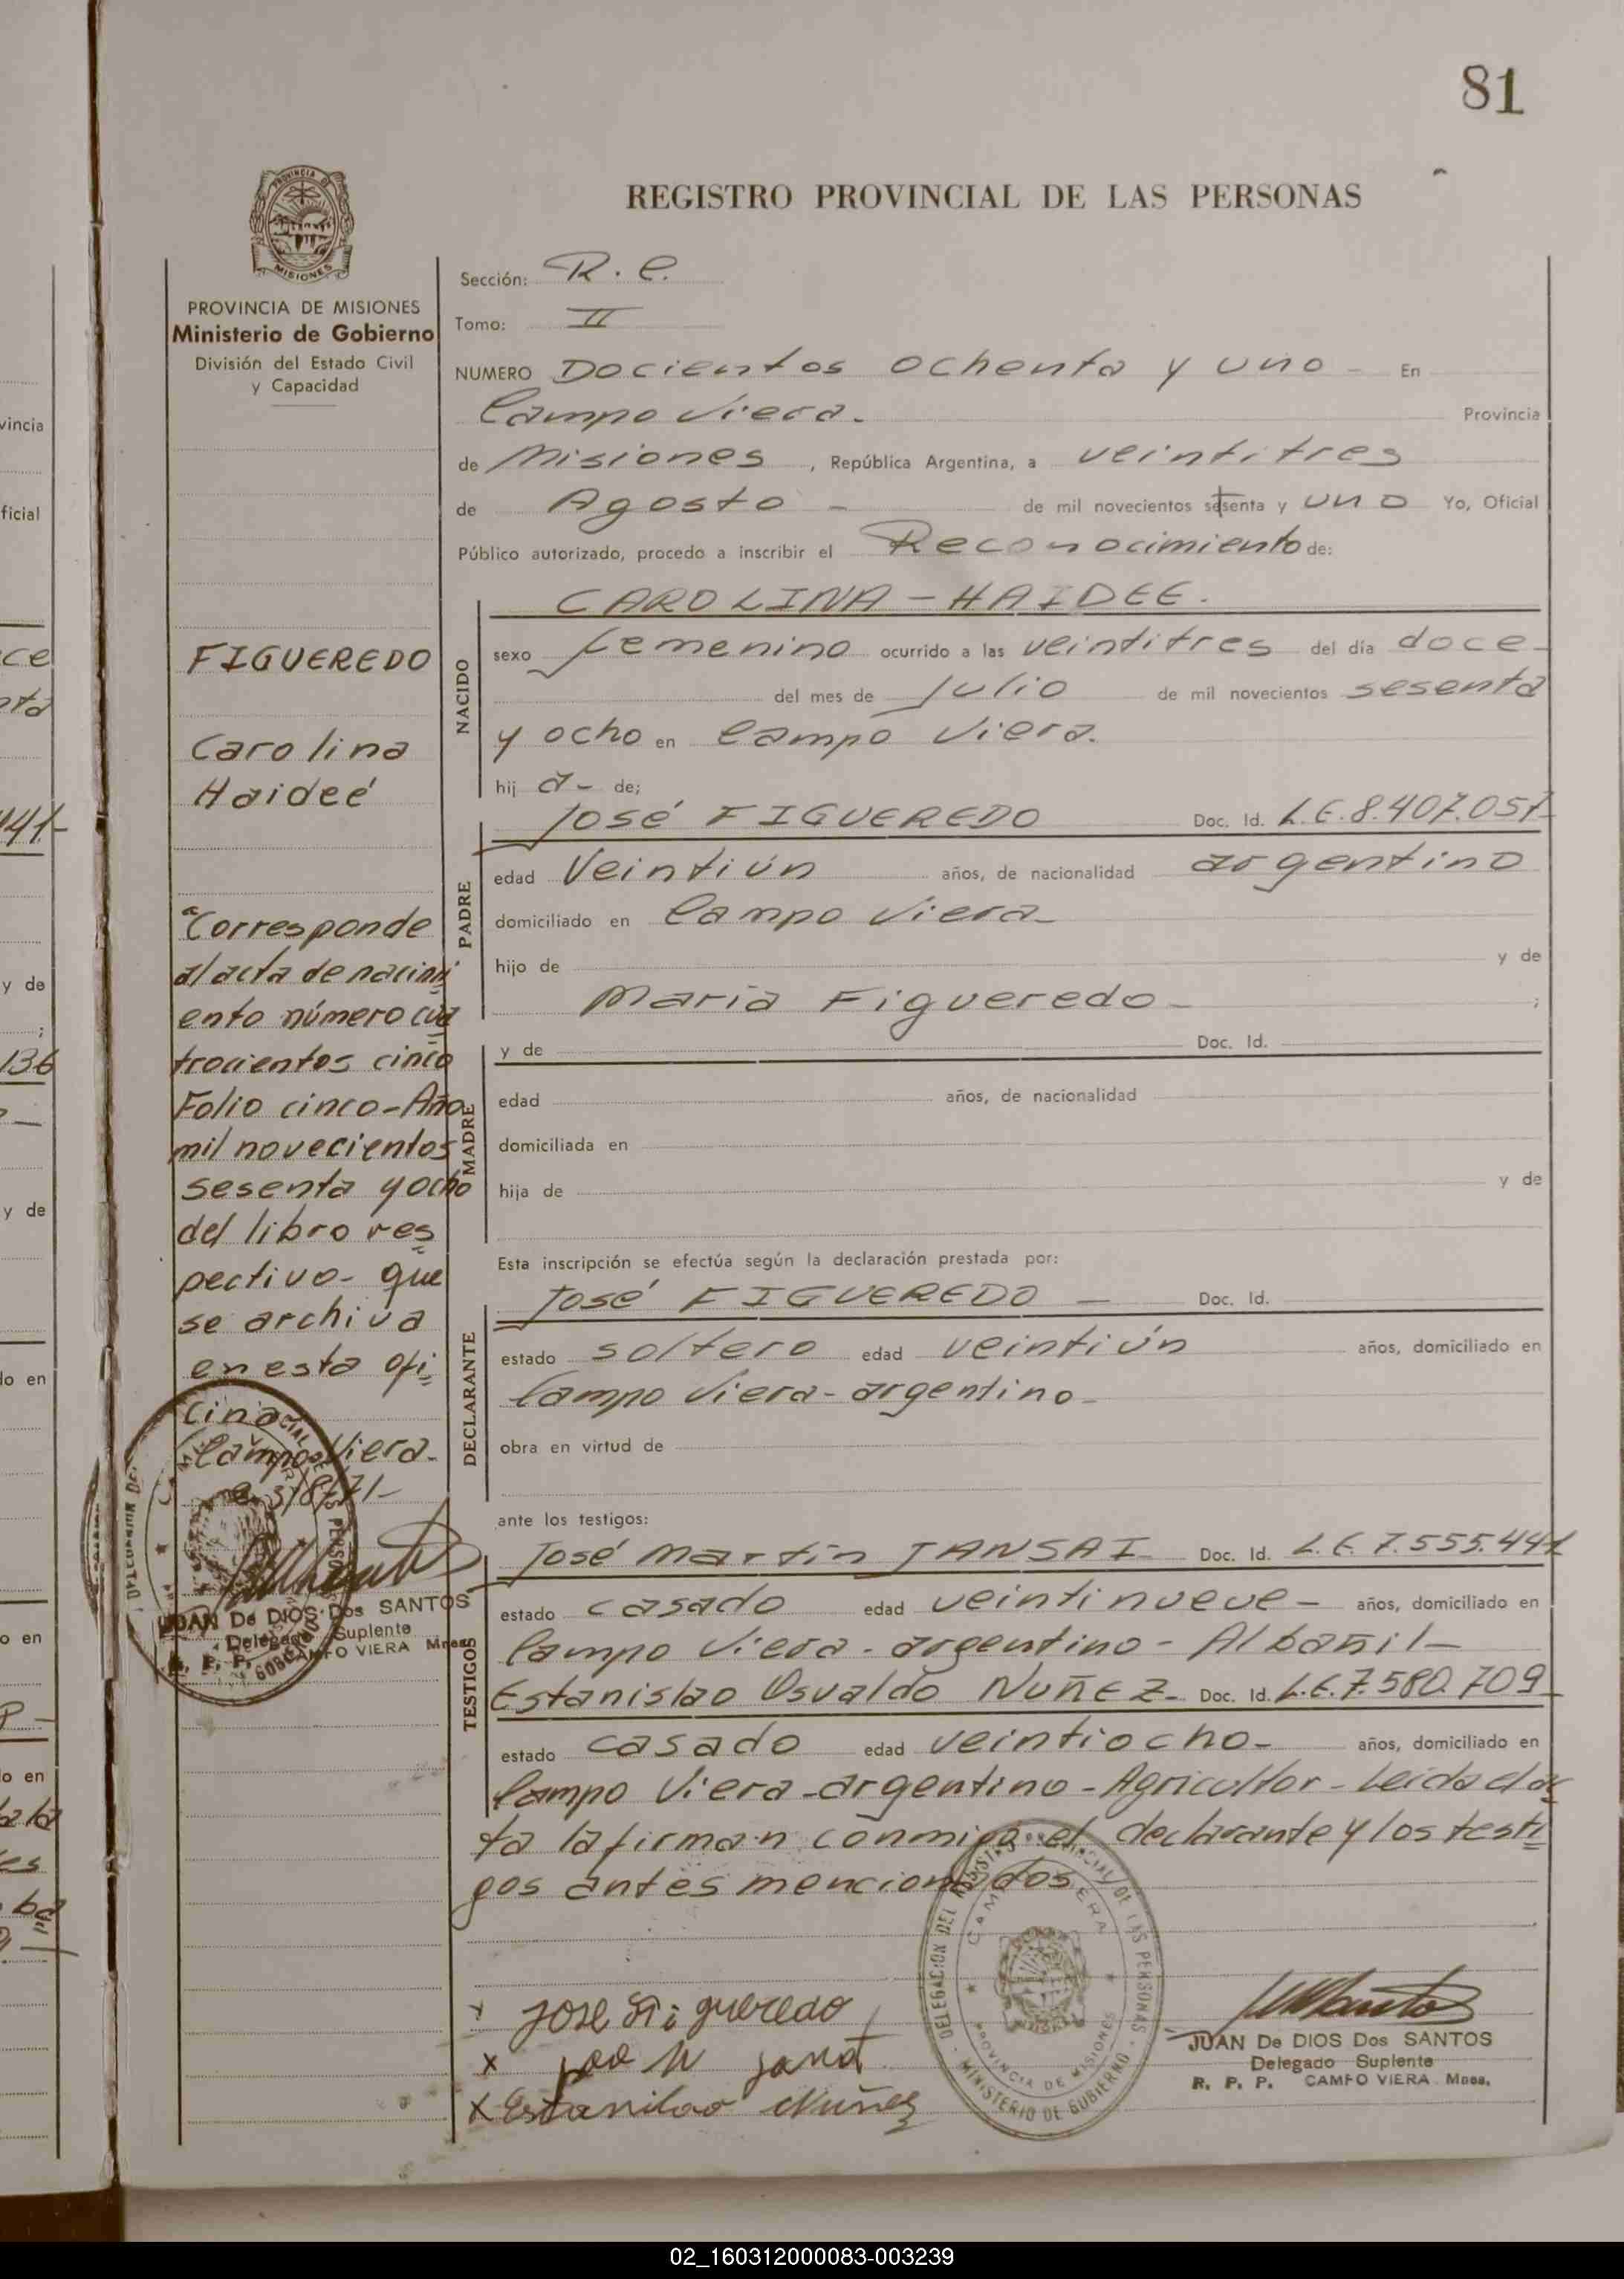 81
REGISTRO PROVINCIAL DE LAS PERSONAS
PROVINCIA DE MISIONES
Ministerio de Gobierno
División del Estado Civil
y Capacidad
FIGUEREDO
Carolina
Haideé
"Corresponde
al acta de nacimi
ento número cua
trocientos cinco
Folio cinco-Año
mil novecientos
sesenta y ocho
del libro res
pectivo- que
se archiva
en esta ofi
cina
Campo Viera-
JUAN De DIOS Dos SANTOS
Delegado Suplente
R. P. P. CAMPO VIERA Mnes.
Sección: R. C.
Tomo: II
NUMERO Docientos ochenta y uno - En
Campo Viera. Provincia
de Misiones, República Argentina, a veintitres
de Agosto - de mil novecientos setenta y uno Yo, Oficial
Público autorizado, procedo a inscribir el Reconocimiento de:
NACIDO
CAROLINA - HAIDEE.
sexo femenino ocurrido a las veintitres del día doce-
del mes de Julio de mil novecientos sesenta
y ocho en Campo Viera.
hij a- de;
PADRE
José FIGUEREDO Doc. Id. L.E.8.407.057-
edad Veintiún años, de nacionalidad argentino
domiciliado en Campo Viera-
hijo de y de
María Figueredo- ;
MADRE
y de Doc. Id.
edad años, de nacionalidad
domiciliada en
hija de y de
Esta inscripción se efectúa según la declaración prestada por:
DECLARANTE
José FIGUEREDO - Doc. Id.
estado soltero edad veintiún años, domiciliado en
Campo Viera-argentino-
obra en virtud de
ante los testigos:
TESTIGOS
José Martín JANSAI- Doc. Id. L.E. 7.555.441
estado casado edad veintinueve- años, domiciliado en
Campo Viera-argentino-Albañil-
Estanislao Osvaldo NUÑEZ- Doc. Id. L.E.7.580.709
estado casado edad veintiocho- años, domiciliado en
Campo Viera-argentino-Agricultor-Leída el ac
ta la firman conmigo el declarante y los testi
gos antes mencionados
x Jose Figueredo
x
x Estanilao Nuñez
DELEGACION DEL REGISTRO PROVINCIAL DE LAS PERSONAS
CAMPO VIERA
PROVINCIA DE MISIONES
MINISTERIO DE GOBIERNO
JUAN De DIOS Dos SANTOS
Delegado Suplente
R. P. P. CAMPO VIERA Mnes.
02_160312000083-003239